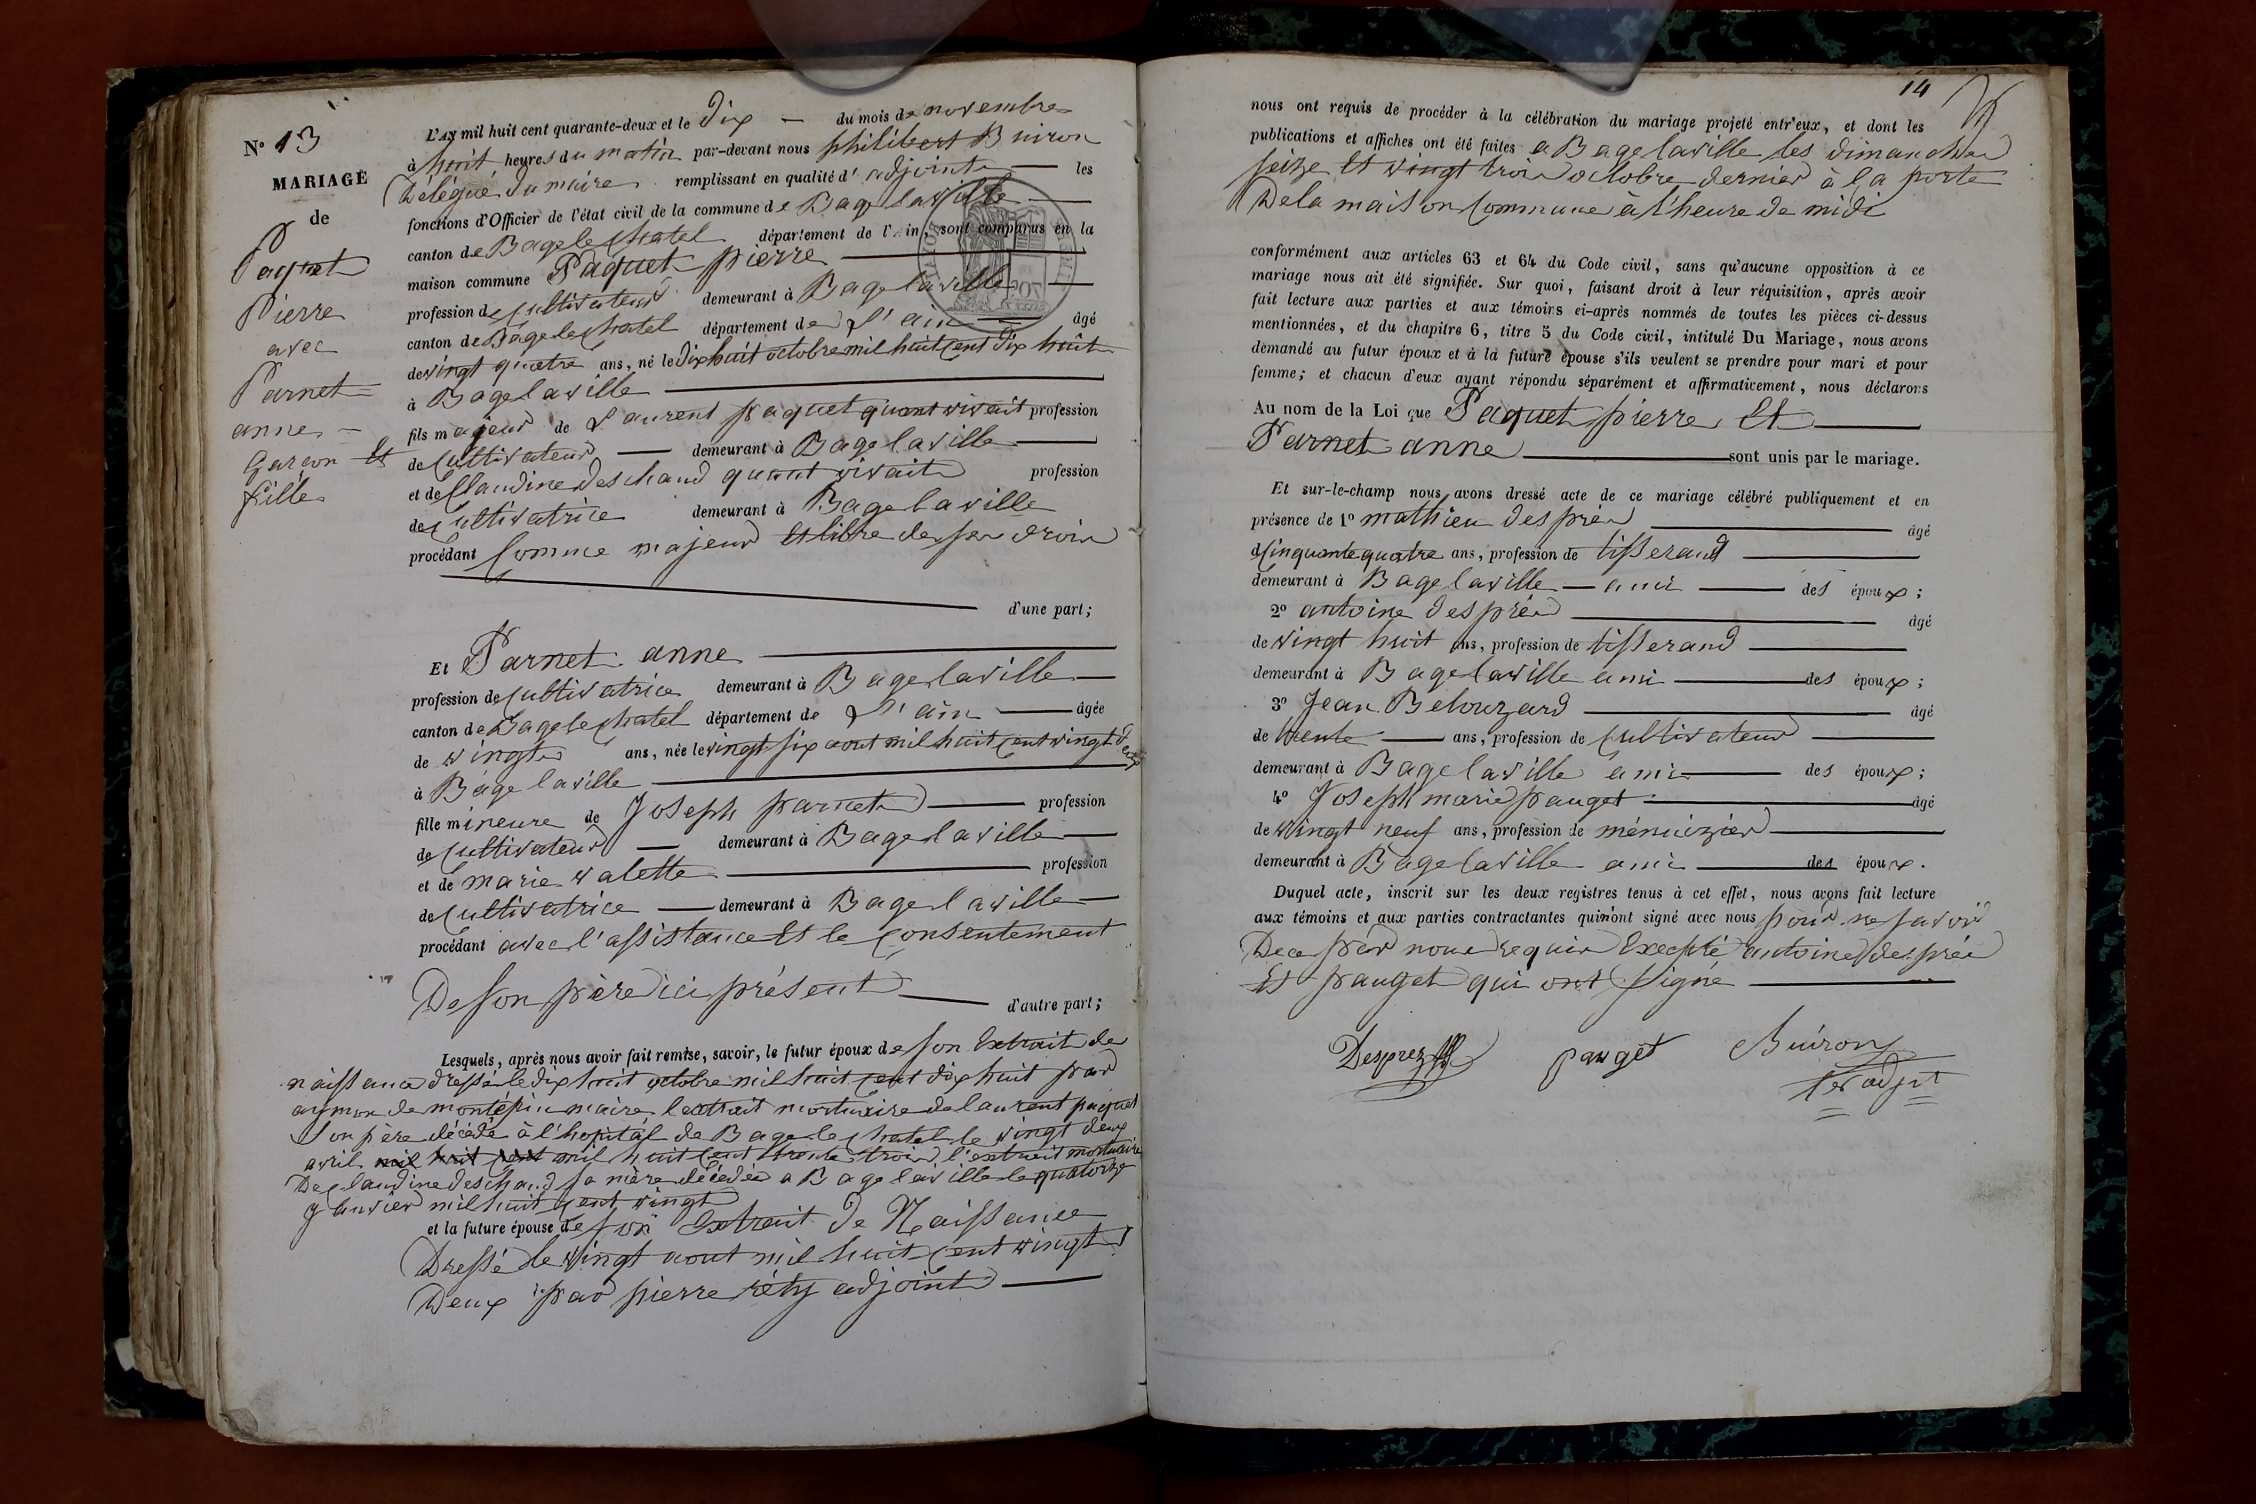 N° 13
MARIAGE
de
Paquet
Pierre
avec
Parnet
anne
Garcon et
fille
L'An mil huit cent quarante-deux et le dix du mois de novembre
à huit heures du matin par-devant nous philibert Buiron
Délégué du maire remplissant en qualité d'adjoint les
fonctions d'Officier de l'état civil de la commune de Bage la ville
canton de Bage le chatel département de l'Ain, sont comparus en la
maison commune Paquet pierre
profession de cultivateur demeurant à Bage la ville
canton de Bage le Chatel département de L'ain âgé
de vingt quatre ans, né le dix huit octobre mil huit cent dix huit
à Bage la ville
fils majeur de Laurent paquet quant vivait profession
de cultivateur demeurant à Bage la ville
et de Claudine deschand quant vivait profession
de cultivatrice demeurant à Bage la ville
procédant comme majeur et libre de ses droits
d'une part;
Et Parnet anne
profession de cultivatrice demeurant à Bage la ville
canton de Bage le chatel département de L'ain âgée
de vingt ans, née le vingt six aout mil huit cent vingt deux
à Bage la ville
fille mineure de Joseph parnet profession
de cultivateur demeurant à Bage la ville
et de marie valette profession
de cultivatrice demeurant à Bage la ville
procédant avec l'assistance et le consentement
De son père ici présent d'autre part;
Lesquels, après nous avoir fait remise, savoir, le futur époux de son Extrait de
naissance dressé le dix huit octobre mil huit cent dix huit par
aymon de montépin maire l'extrait mortuaire de laurent paquet
son père décédé à l'hopital de Bage le chatel le vingt deux
avril mil huit cent trente trois l'extrait mortuaire
De claudine deschand sa mère décédée a Bage la ville le quatorze
janvier mil huit cent vingt
et la future épouse de son Extrait de Naissance
Dressé le vingt aout mil huit cent vingt
Deux par pierre réty adjoint
14
nous ont requis de procéder à la célébration du mariage projeté entr'eux, et dont les
publications et affiches ont été faites a Bage la ville les dimanches
seize et vingt trois octobre dernier à la porte
De la maison commune à l'heure de midi
conformément aux articles 63 et 64 du Code civil, sans qu'aucune opposition à ce
mariage nous ait été signifiée. Sur quoi, faisant droit à leur réquisition, après avoir
fait lecture aux parties et aux témoins ci-après nommés de toutes les pièces ci-dessus
mentionnées, et du chapitre 6, titre 5 du Code civil, intitulé Du Mariage, nous avons
demandé au futur époux et à la future épouse s'ils veulent se prendre pour mari et pour
femme; et chacun d'eux ayant répondu séparément et affirmativement, nous déclarons
Au nom de la Loi que Paquet pierre Et
Parnet anne sont unis par le mariage.
Et sur-le-champ nous avons dressé acte de ce mariage célébré publiquement et en
présence de 1° mathieu després âgé
de cinquante quatre ans, profession de tisserand
demeurant à Bage la ville ami des époux;
2° antoine després âgé
de vingt huit ans, profession de tisserand
demeurant à Bage la ville ami des époux;
3° Jean Belouzard âgé
de trente ans, profession de cultivateur
demeurant à Bage la ville ami des époux;
4° Joseph marie pauget âgé
de vingt neuf ans, profession de ménuizier
demeurant à Bage la ville ami des époux.
Duquel acte, inscrit sur les deux registres tenus à cet effet, nous avons fait lecture
aux témoins et aux parties contractantes qui n'ont signé avec nous pour ne savoir
De ce par nous requis Excepté antoine després
Et pauget qui ont signé
Desprez pauget Buiron
1er adjt